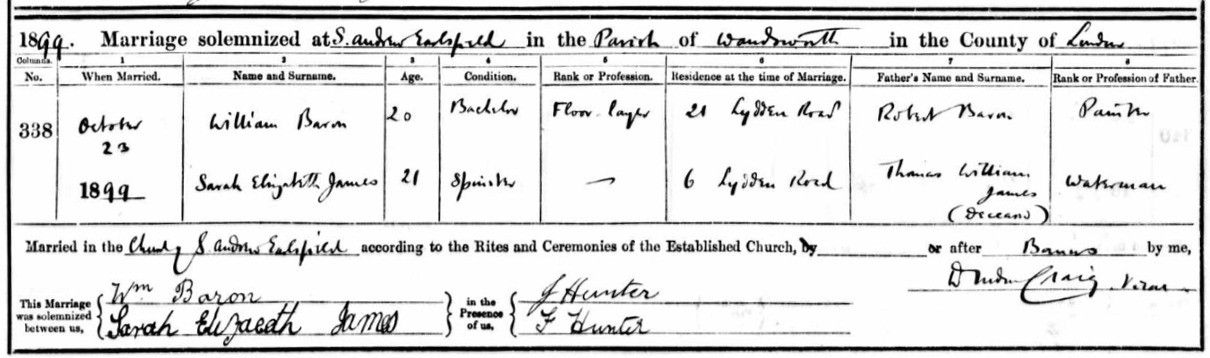 1899. Marriage solemnized at S. Andrew Earlsfield in the Parish of Wandsworth in the County of London
Columns. 1 2 3 4 5 6 7 8
No. When Married. Name and Surname. Age. Condition. Rank or Profession. Residence at the time of Marriage. Father's Name and Surname. Rank or Profession of Father.
338 October 23 William Baron 20 Bachelor Floor-layer 21 Lydden Road Robert Baron Painter
1899 Sarah Elizabeth James 21 Spinster — 6 Lydden Road Thomas William James (deceased) Waterman
Married in the Church of S. Andrew Earlsfield according to the Rites and Ceremonies of the Established Church, by or after Banns by me,
Craig Vicar
This Marriage was solemnized between us, Wm Baron in the Presence of us, J Hunter
Sarah Elizaeath James F Hunter